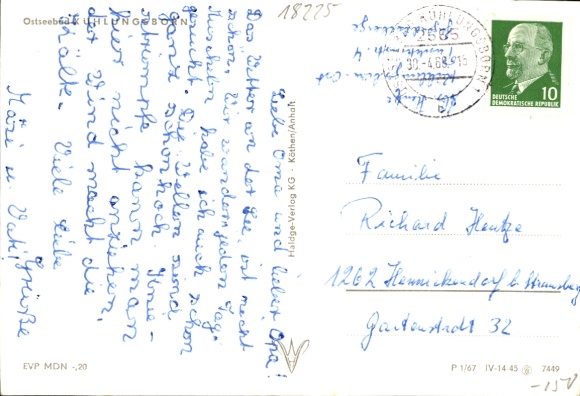 Ostseebad KÜHLUNGSBORN
18225
Liebe Oma und lieber Opa!
Das Wetter an der See ist recht
schön. Wir wandern jeden Tag.
Muscheln habe ich auch schon
gesucht. Die Wellen sind
ganz schön hoch. Knie-
strümpfe kann man
hier nicht anziehen,
der Wind macht die
Kälte. Viele liebe
Grüße
u. Vati
Haldge-Verlag KG · Köthen/Anhalt
2565
KÜHLUNGSBORN
30.-4.68-15
b
10
DEUTSCHE
DEMOKRATISCHE REPUBLIK
Familie
Richard Hentze
1262 Hennickendorf b. Strausberg
Gartenstradt 32
EVP MDN -,20
P 1/67 IV-14-45 7449
-15V